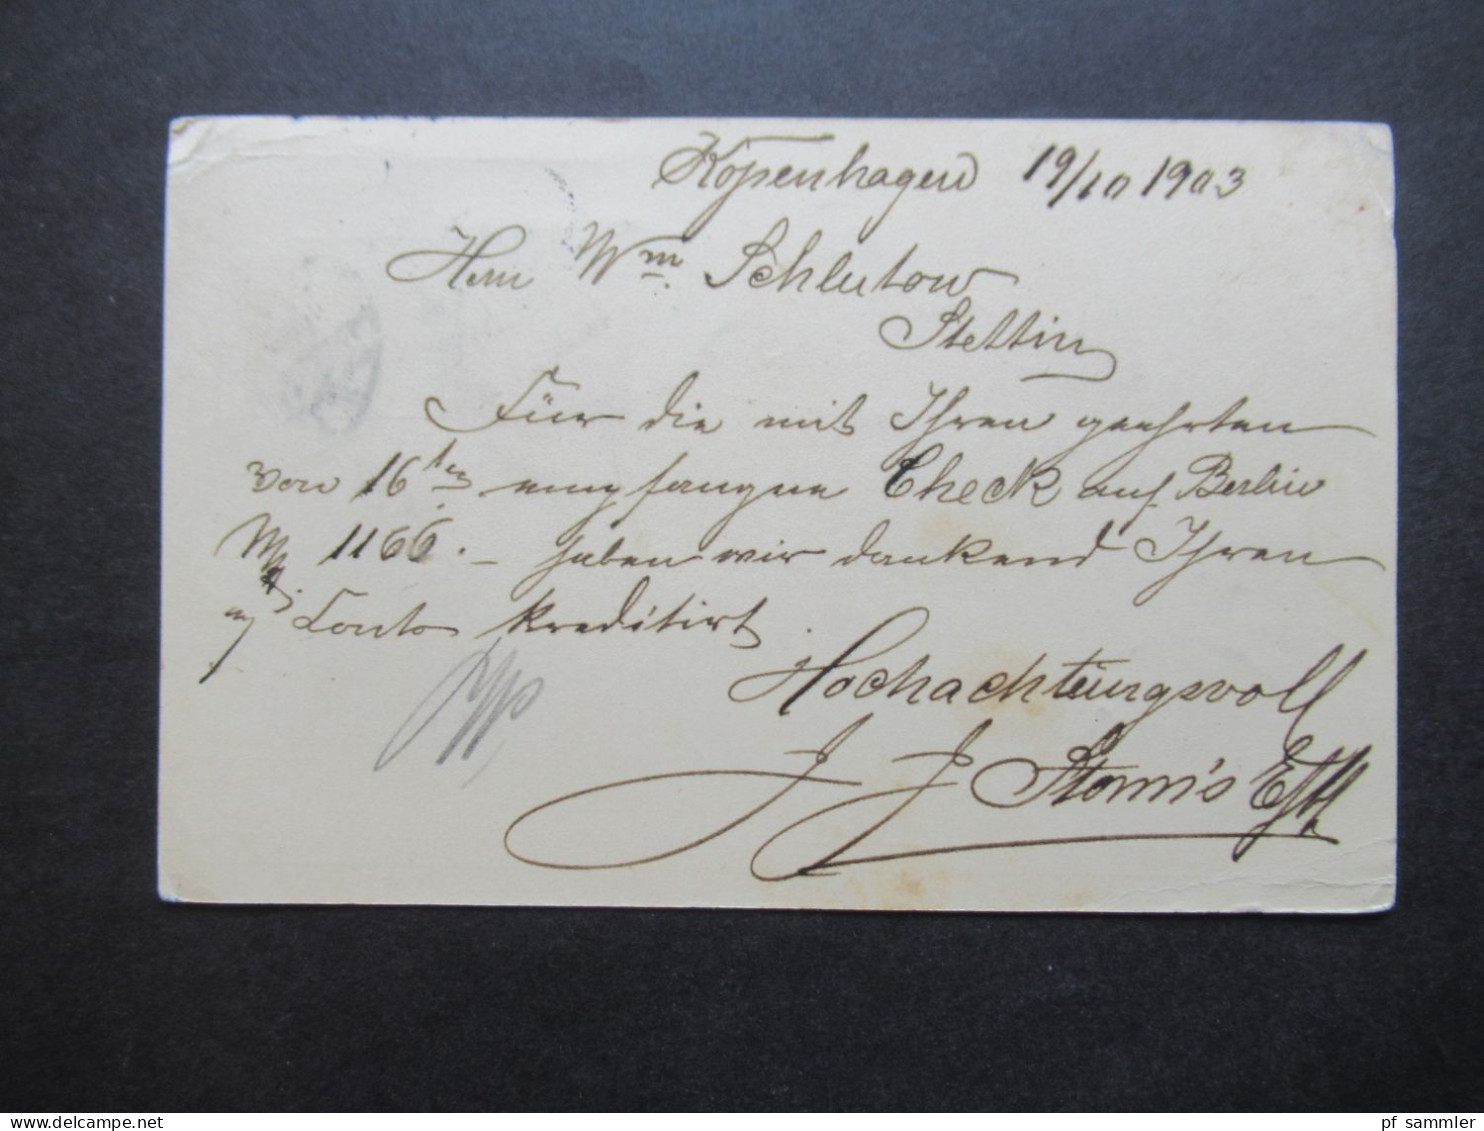 Kopenhagen 19/10 1903
Herrn Wm Schlutow
Stettin
Für die mit Ihren geehrten
von 16ten empfangene Check auf Berlin
M 1166.– haben wir dankend Ihren
Conto kreditirt.
Hochachtungsvoll
J J Storm's Eftf.
www.delcampe.net
pf_sammler